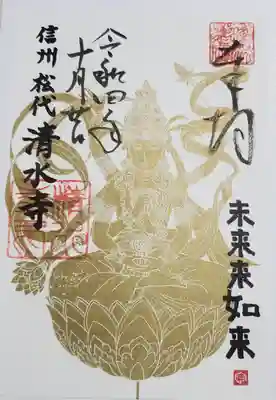 奉拝
未来来如来
令和四年
十月
信州 松代 清水寺